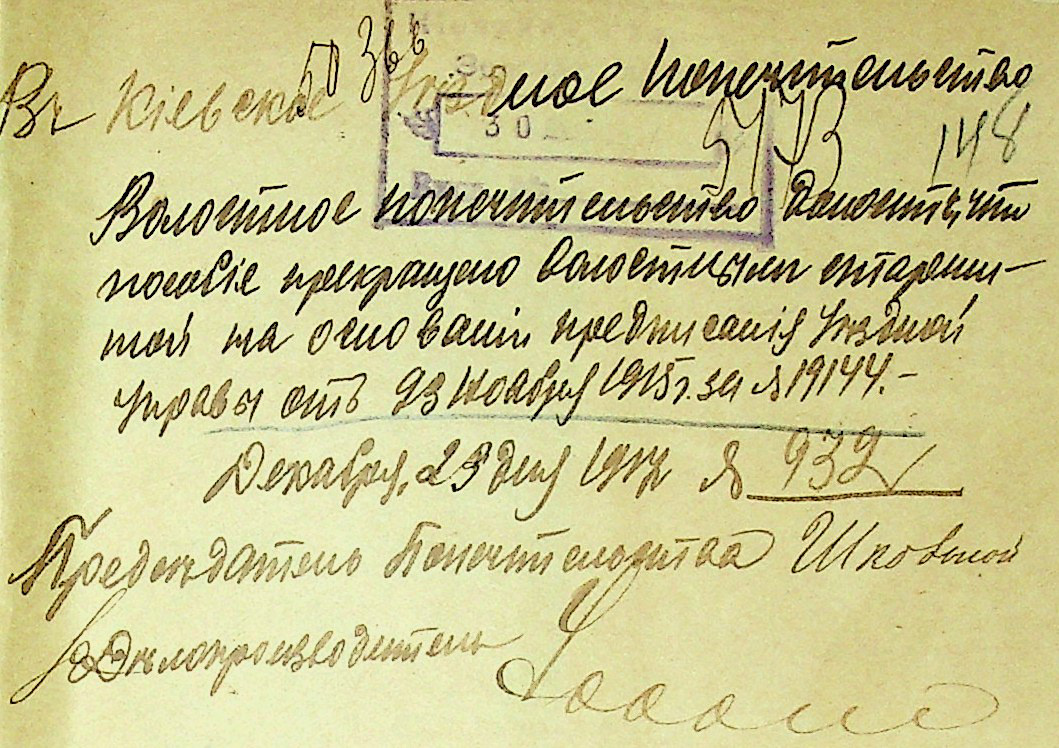 50 366
Въ Кіевское Уѣздное Попечительство
30
5143
148
Волостное попечительство доноситъ, что
пособіе прекращено волостнымъ старши-
ной на основаніи предписанія Уѣздной
Управы отъ 23 Ноября 1915 г. за № 19144.-
Декабря, 23 дня 1917 г. № 932
Предсѣдатель Попечительства
Дѣлопроизводитель